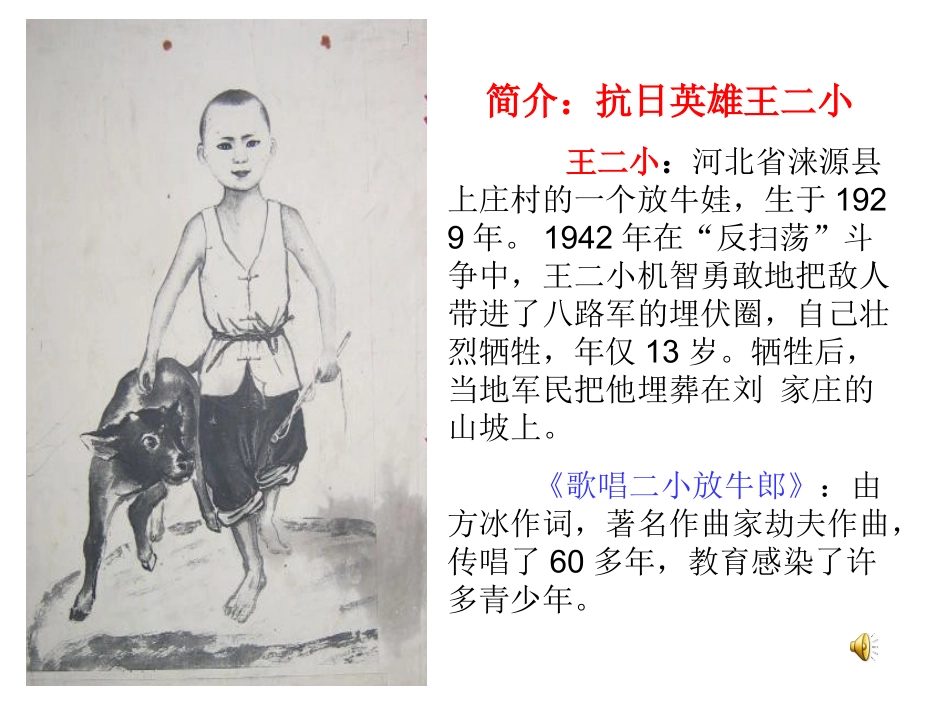 简介：抗日英雄王二小
王二小：河北省涞源县
上庄村的一个放牛娃，生于 192
9 年。 1942 年在“反扫荡”斗
争中，王二小机智勇敢地把敌人
带进了八路军的埋伏圈，自己壮
烈牺牲，年仅 13 岁。牺牲后，
当地军民把他埋葬在刘 家庄的
山坡上。
《歌唱二小放牛郎》：由
方冰作词，著名作曲家劫夫作曲，
传唱了 60 多年，教育感染了许
多青少年。